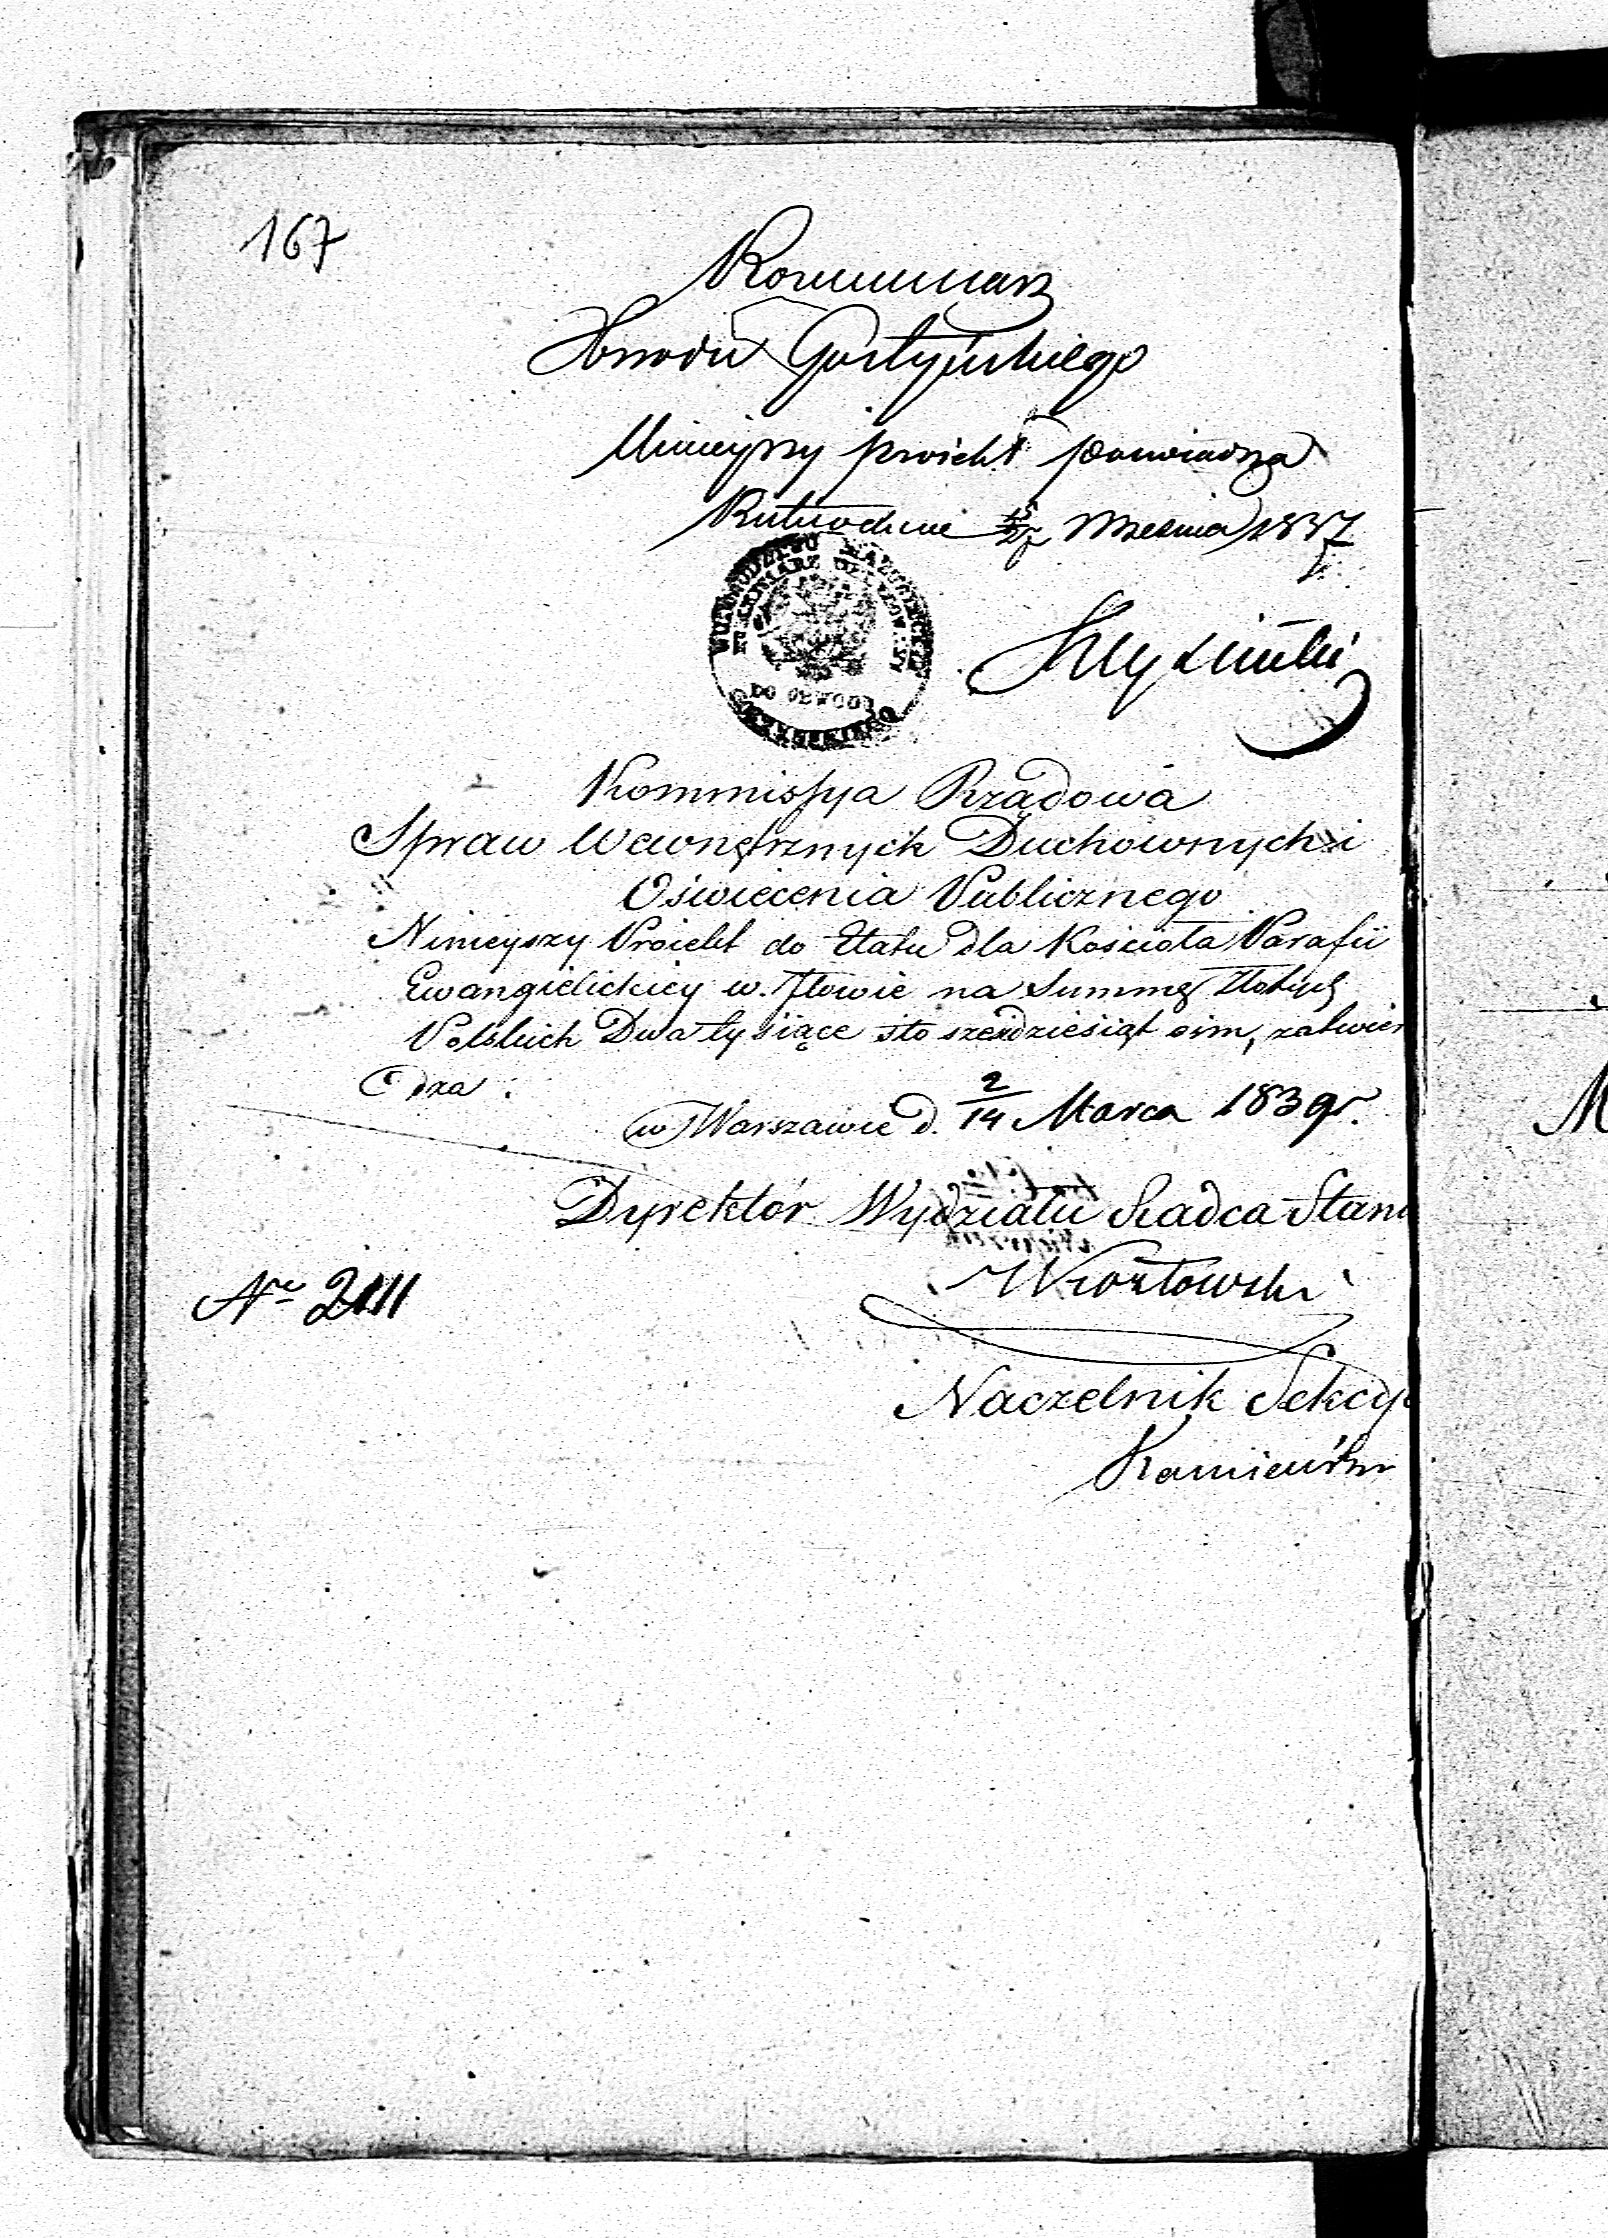 167
Kommissarz
Obwodu Gostyńskiego
Ninieyszy proiekt poswiadza
Września 1837
WOJEWODZTWO MAZOWIECKIE
DO OBWODU
GOSTYŃSKIEGO
Kommissya Rządowa
Spraw Wewnętrznych Duchownych i
Oświecenia Publicznego
Ninieyszy Proiekt do Etatu dla Kościoła Parafii
Ewangielickiey w Iłowie na Summę Złotych
Polskich Dwa tysiące sto szesdziesiąt ośm, zatwier
dza.
w Warszawie d. 2/14 Marca 1839 r.
Dyrektór Wydziału Radca Stanu
Kozłowski
No 2111
Naczelnik Sekcyi